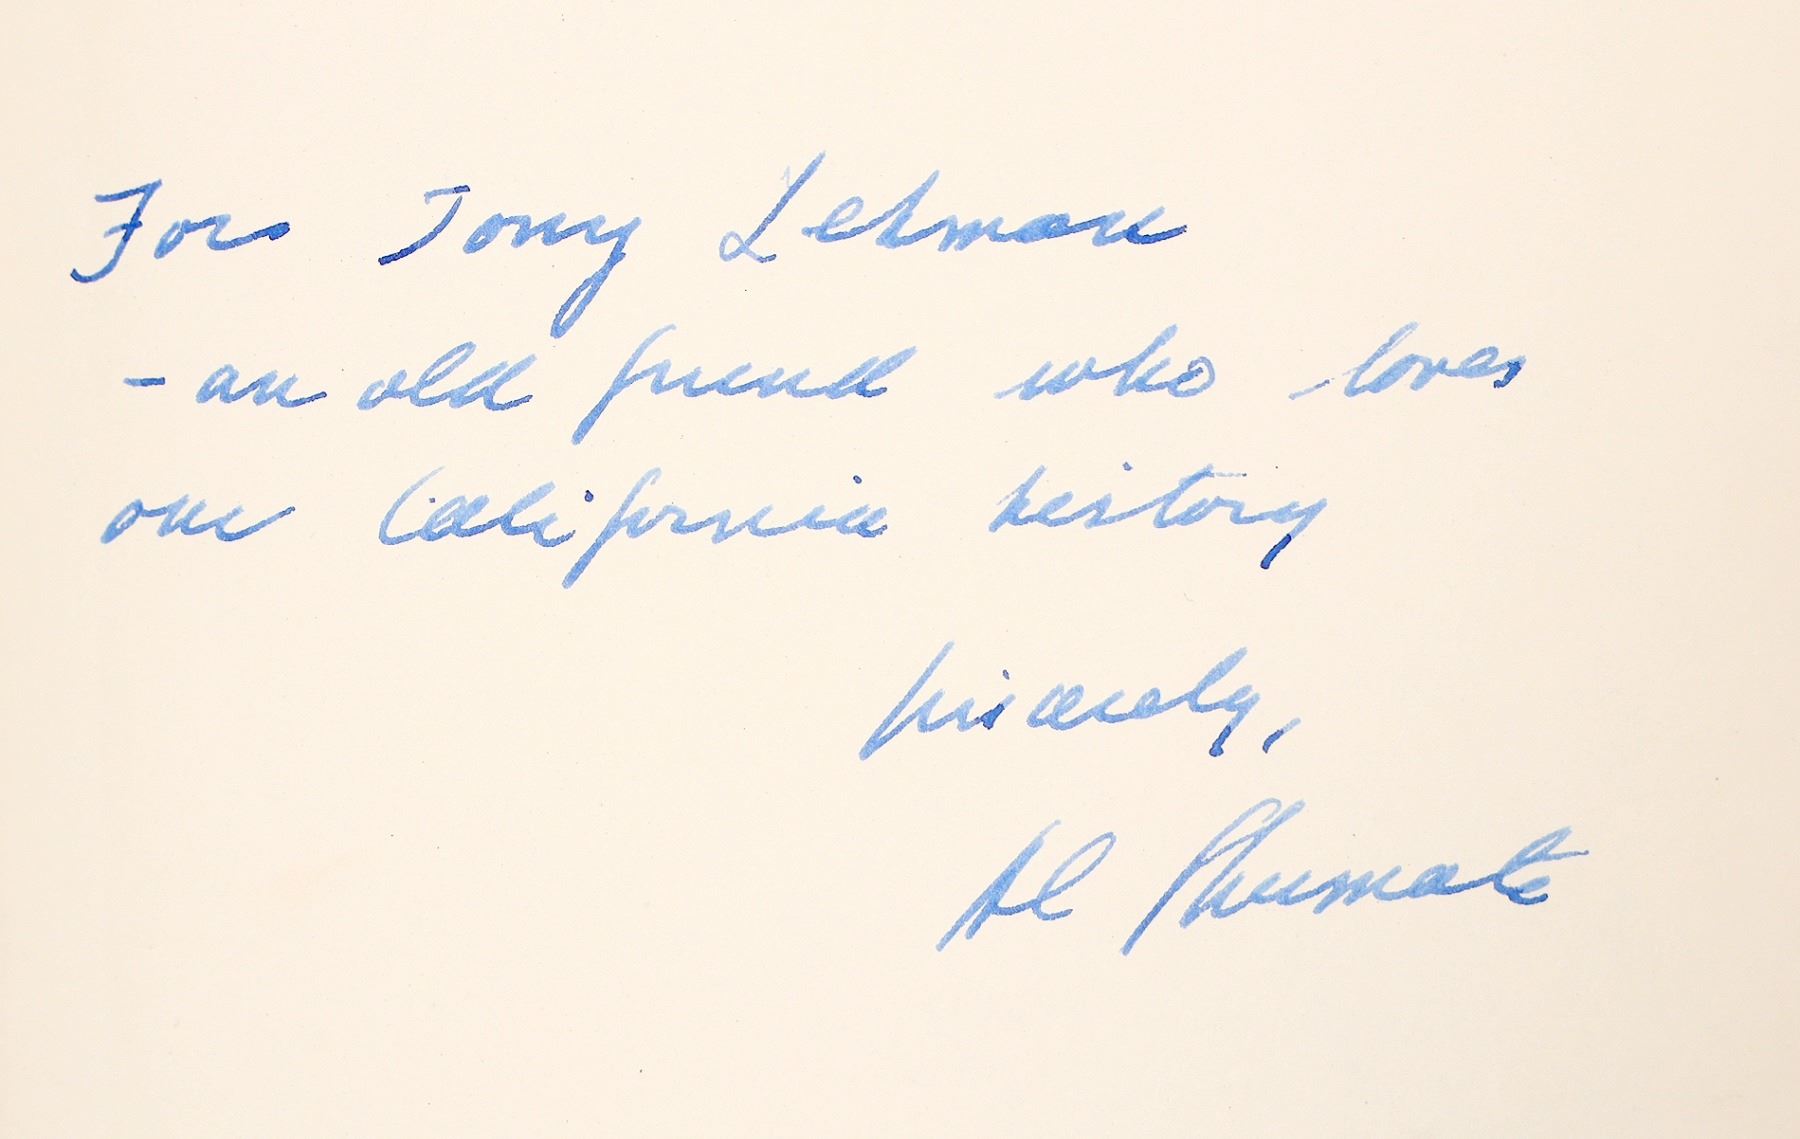 For Tony Lehman
- an old friend who loves
our California history
Sincerely,
Al Shumate